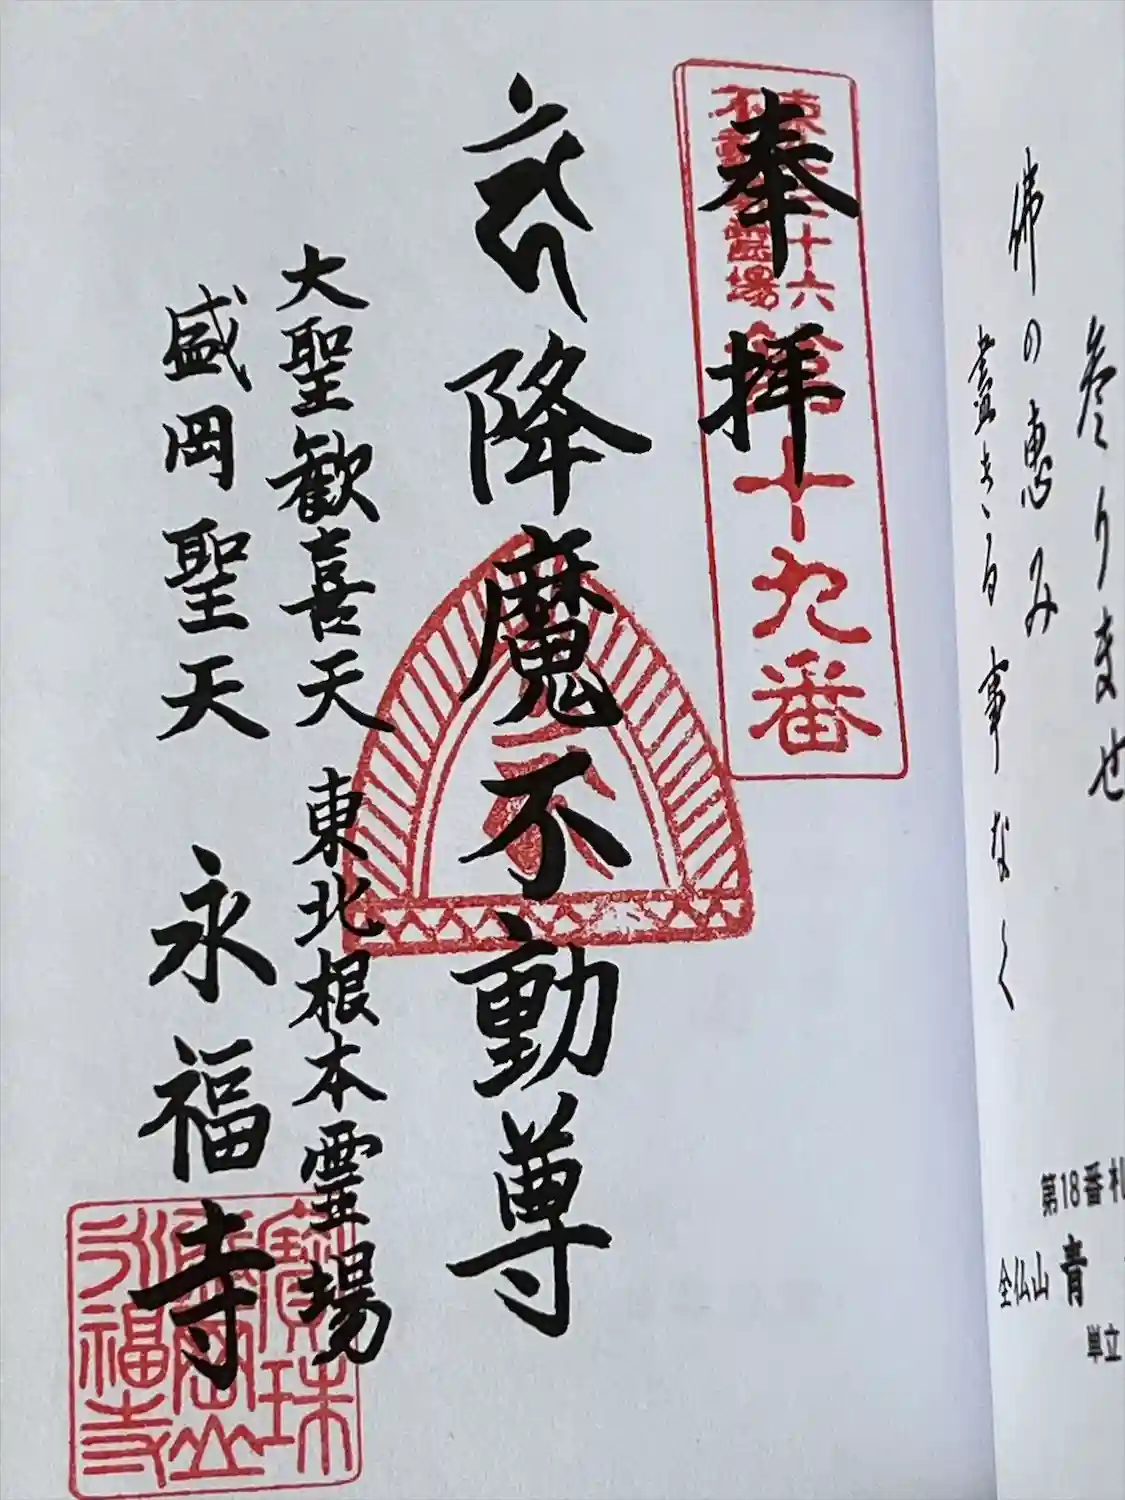 参りませ
佛の恵み
盡きる事なく
第18番札
全仏山 青
単立
奉拝
東北三十六
不動尊霊場
第十九番
降魔不動尊
大聖歓喜天 東北根本霊場
盛岡聖天 永福寺
寶珠
盛岡山
永福寺